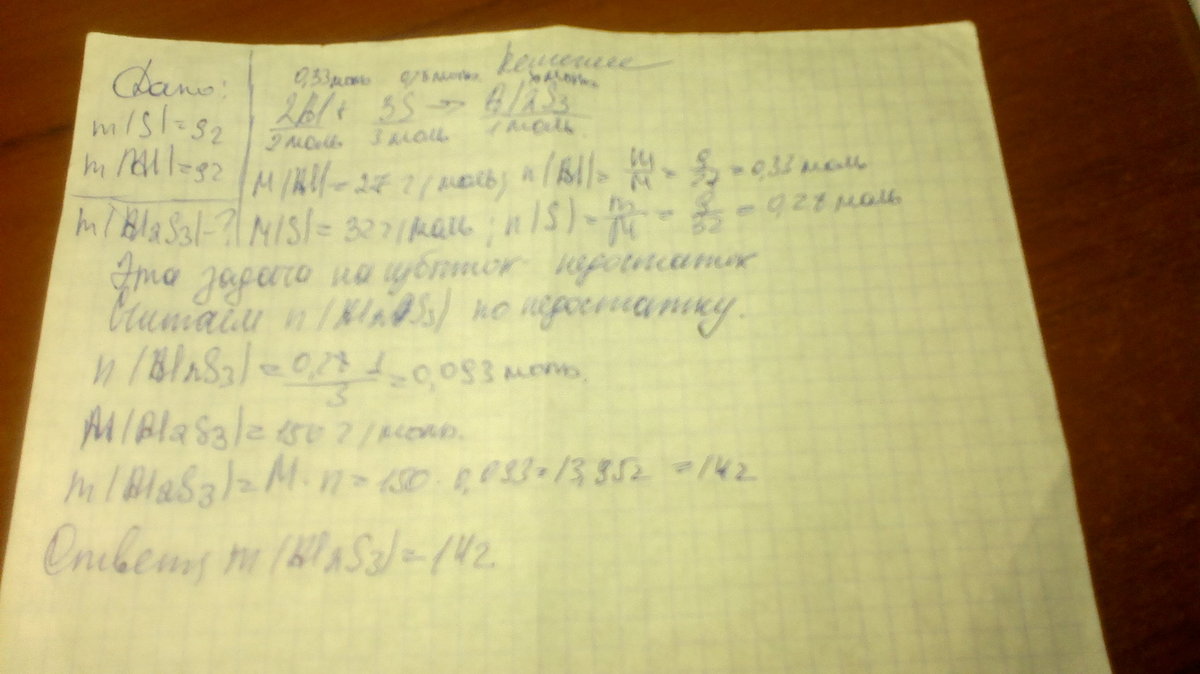 Дано:
m(S)=9г
m(Al)=9г
m(Al2S3)-?
Решение
0,33моль 0,28моль xмоль
2Al + 3S → Al2S3
2моль 3моль 1моль
M(Al)=27г/моль; n(Al)= m/M = 9/27 = 0,33 моль
M(S)=32г/моль; n(S)= m/M = 9/32 = 0,28 моль
Эта задача на избыток-недостаток
Считаем n(Al2S3) по недостатку.
n(Al2S3)= 0,28·1/3 = 0,093моль.
M(Al2S3)=150г/моль.
m(Al2S3)=M·n=150·0,093=13,95г =14г
Ответ: m(Al2S3)=14г